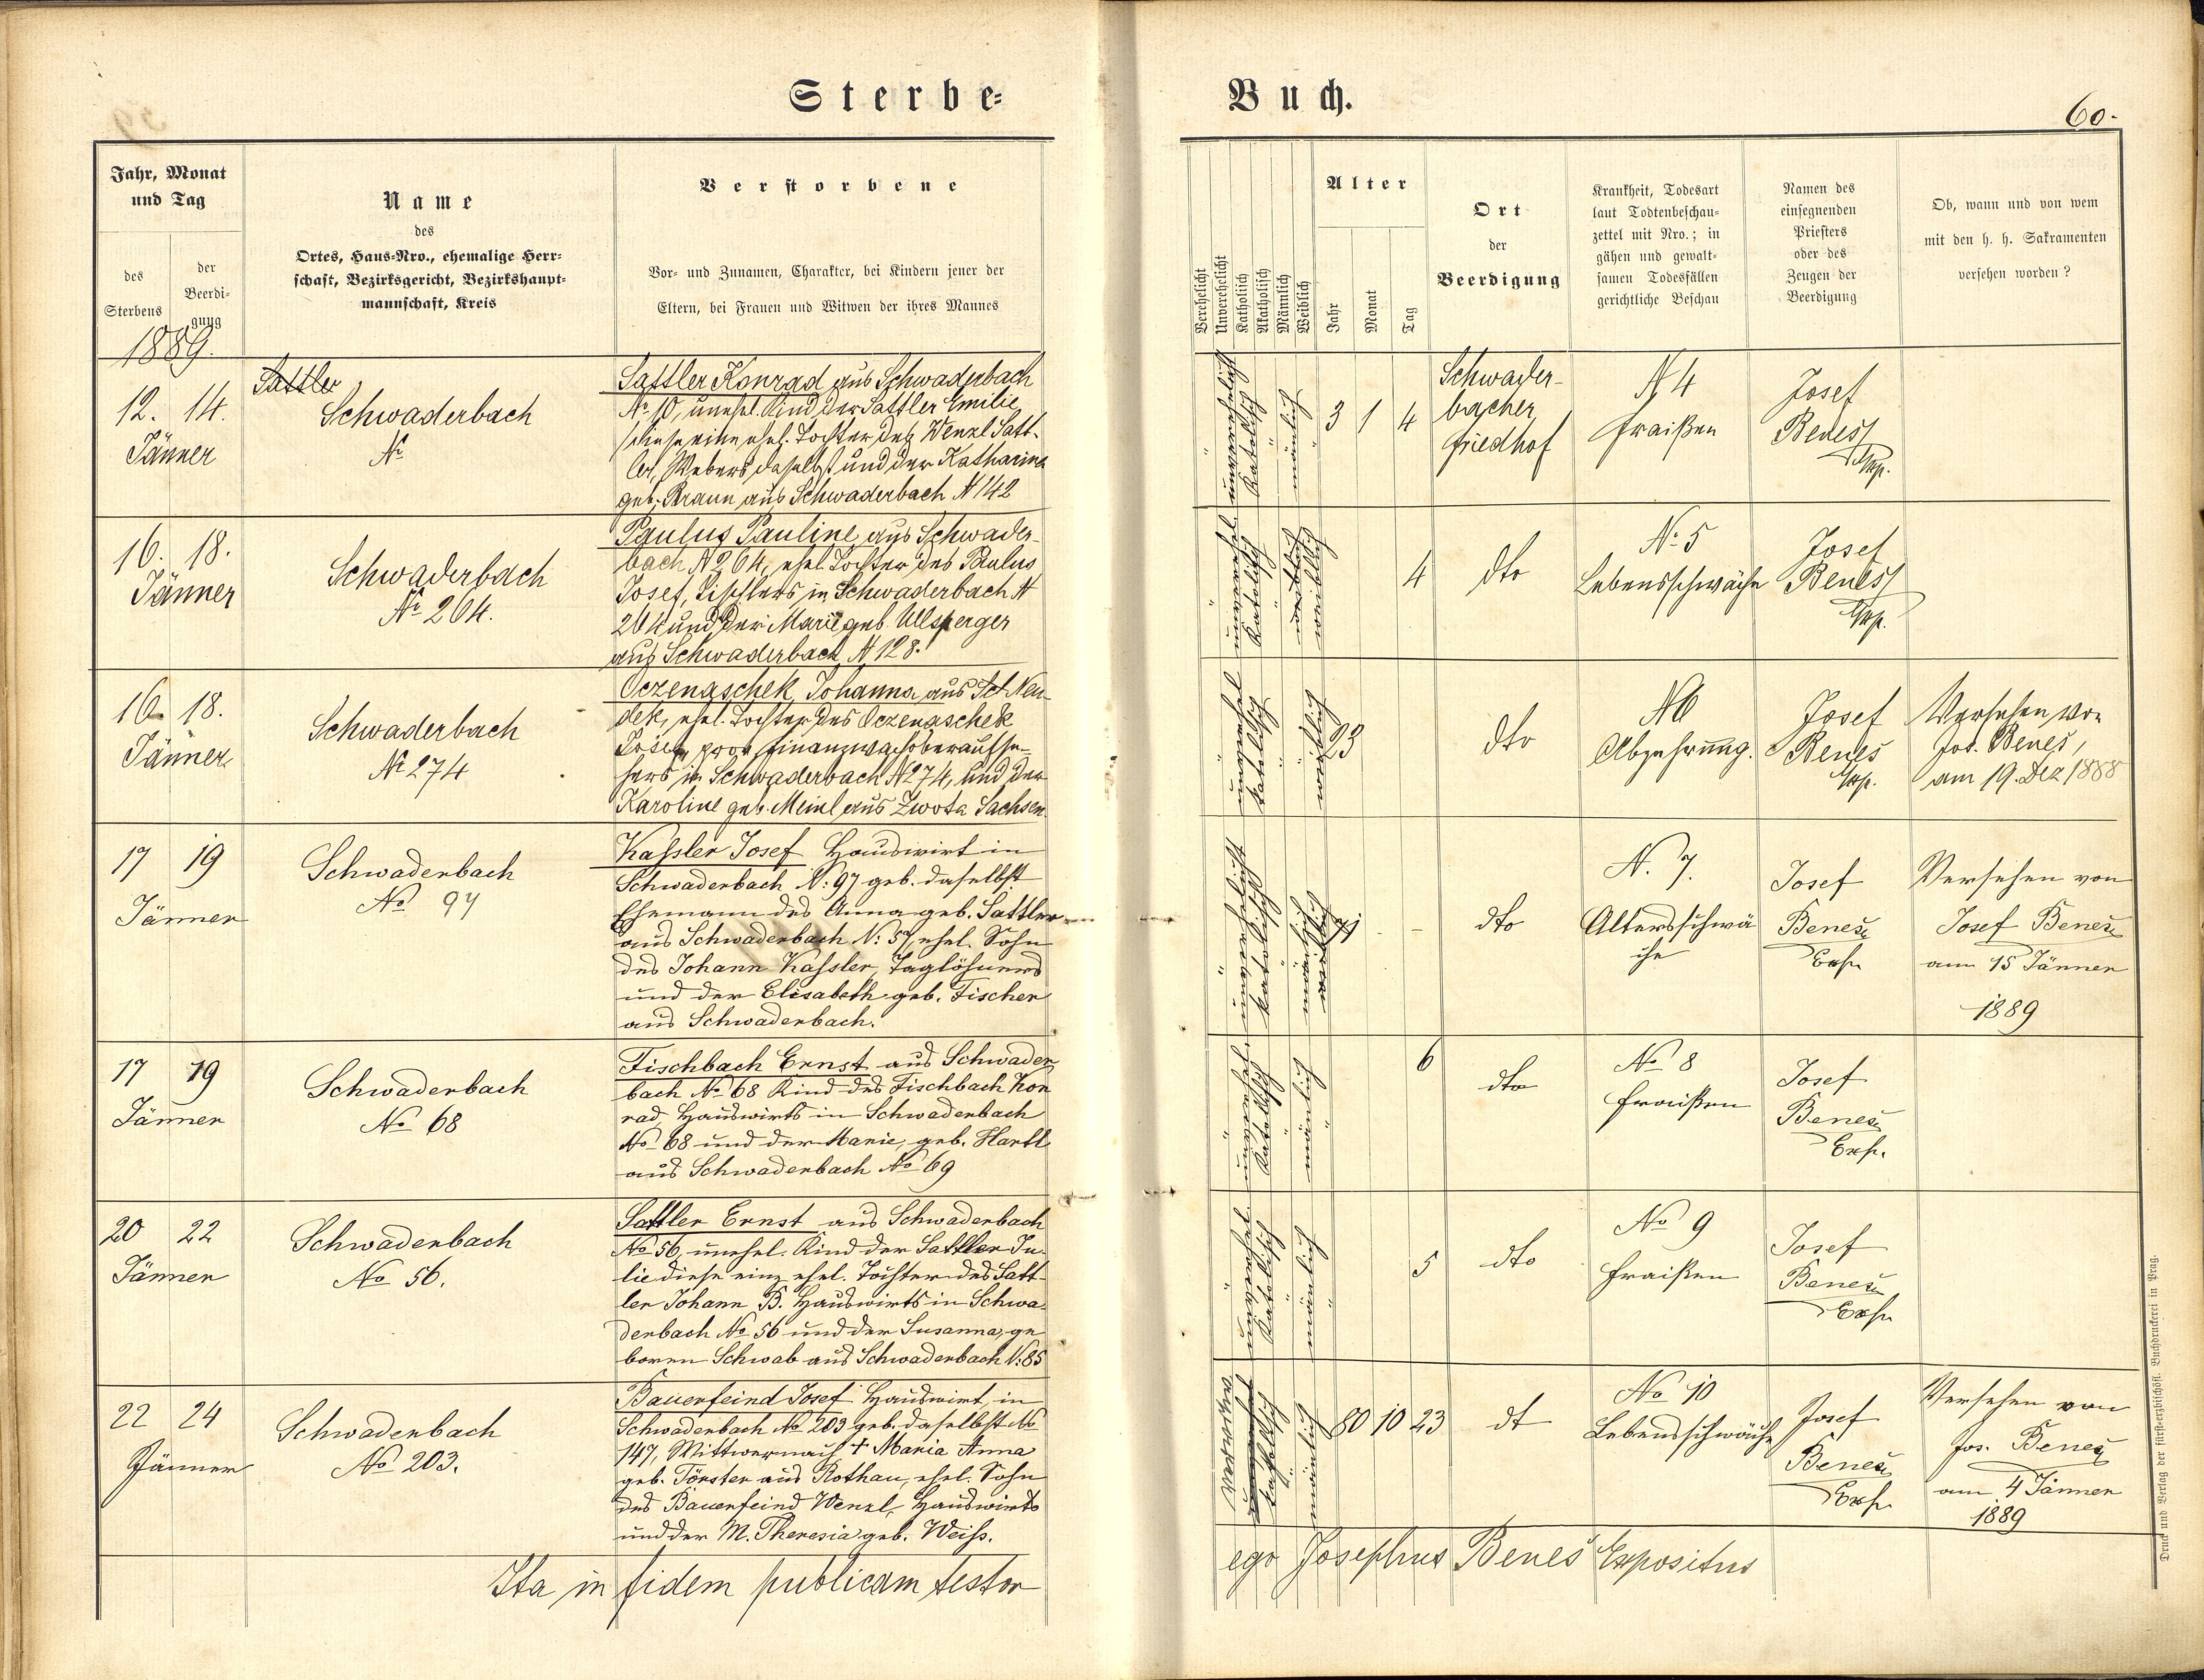 Sterbe-
Buch.
60.
Jahr, Monat
und Tag
des
Sterbens
der
Beerdi-
gung
1889.
Name
des
Ortes, Haus-Nro., ehemalige Herr-
schaft, Bezirksgericht, Bezirkshaupt-
mannschaft, Kreis
Verstorbene
Vor- und Zunamen, Charakter, bei Kindern jener der
Eltern, bei Frauen und Witwen der ihres Mannes
Verehelicht
Unverehelicht
Katholisch
Akatholisch
Männlich
Weiblich
Alter
Jahr
Monat
Tag
Ort
der
Beerdigung
Krankheit, Todesart
laut Todtenbeschau-
zettel mit Nro.; in
gähen und gewalt-
samen Todesfällen
gerichtliche Beschau
Namen des
einsegnenden
Priesters
oder des
Zeugen der
Beerdigung
Ob, wann und von wem
mit den h. h. Sakramenten
versehen worden?
12. 14.
Jänner
Sattler
Schwaderbach
No
Sattler Konrad aus Schwaderbach
No 10, unehel. Kind der Sattler Emilie
diese eine ehel. Tochter des Wenzl Satt-
ler, Webers daselbst und der Katharina
geb. Braun aus Schwaderbach N 142
unverehelicht
Katolisch
mänlich
3 1 4
Schwader-
bacher
Friedhof
N 4
Fraißen
Josef
Beneš
Exp.
16. 18.
Jänner
Schwaderbach
No 264.
Paulus Pauline aus Schwader-
bach N 264, ehel. Tochter des Paulus
Josef, Tischlers in Schwaderbach N
264 und der Marie geb. Ullsperger
aus Schwaderbach N 128.
unverehel
Katolisch
weiblich
4
dto
No 5
Lebensschwäche
Josef
Beneš
Exp.
16. 18.
Jänner
Schwaderbach
No 274
Oczenaschek Johanna aus Sct. Neu-
dek, ehel. Tochter des Oczenaschek
Josef, prov. Finanzwachoberaufse-
hers in Schwaderbach N 274, und der
Karoline geb. Meinl aus Zwota Sachsen.
unverehel
Katolisch
weiblich
23
dto
N 6
Abzehrung.
Josef
Beneš
Exp.
Versehen von
Jos. Beneš,
am 19. Dez 1888
17 19
Jänner
Schwaderbach
No 97
Kaßler Josef Hauswirt in
Schwaderbach N: 97 geb. daselbst
Ehemann des Anna geb. Sattler
aus Schwaderbach N: 57, ehel. Sohn
des Johann Kaßler, Taglöhners
und der Elisabeth geb. Fischer
aus Schwaderbach.
unverehelicht
Katolisch
mänlich
71 - -
dto
N. 7.
Altersschwä
che
Josef
Beneš
Exp.
Versehen von
Josef Beneš
am 15 Jänner
1889
17 19
Jänner
Schwaderbach
No 68
Fischbach Ernst aus Schwader
bach No 68 Kind des Fischbach Kon
rad, Hauswirts in Schwaderbach
No 68 und der Marie, geb. Hartl
aus Schwaderbach No 69
unverehel
Katolisch
mänlich
6
dto
No 8
Fraißen
Josef
Beneš
Exp.
20 22
Jänner
Schwaderbach
No 56.
Sattler Ernst aus Schwaderbach
No 56, unehel. Kind der Sattler Ju-
lie diese eine ehel. Tochter des Satt-
ler Johann B. Hauswirts in Schwa-
derbach No 56 und der Susanna, ge
boren Schwab aus Schwaderbach N: 85
unverehel
Katolisch
mänlich
5
dto
No 9
Fraißen
Josef
Beneš
Exp.
22 24
Jänner
Schwaderbach
No 203.
Bauerfeind Josef Hauswirt, in
Schwaderbach No 203 geb. daselbst No
147, Wittwer nach + Maria Anna
geb. Förster aus Rothau, ehel. Sohn
des Bauerfeind Wenzl, Hauswirts
und der M. Theresia geb. Weiß.
verwitwet
Katholisch
mänlich
80 10 23
dt
No 10
Lebensschwäche
Josef
Beneš
Exp.
Versehen von
Jos. Beneš
am 4 Jänner
1889
Ita in fidem publicam testor
ego Josephus Beneš Expositus
Druck und Verlag der fürst-erzbischöfl. Buchdruckerei in Prag.